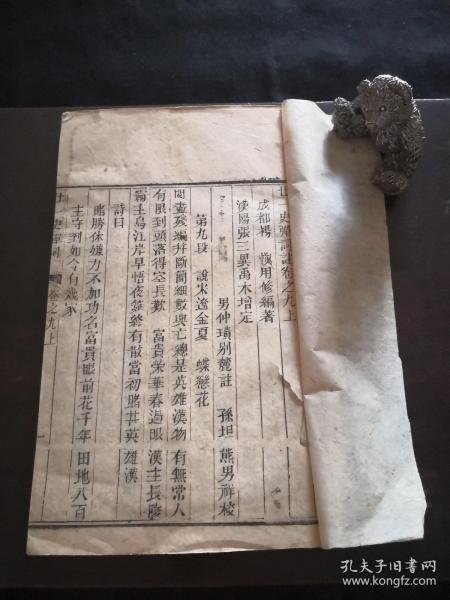 廿一史彈詞註卷之九上
成都楊 慎用修編著
漢陽張三異禹木增定
男仲璜別麓註 孫坦熊男祥校
第九段 說宋遼金夏 蝶戀花
閱盡殘編幷斷簡細數興亡總是英雄漢物有無常人
有限到頭落得空長歎 富貴榮華春過眼漢主長陵
霸主烏江岸早悟夜筵終有散當初賭甚英雄漢
詩曰
勝休嫌力不加功名富貴眼前花千年田地八百
主守到如今有幾家
史彈詞 卷之九上
孔夫子旧书网
www.kongfz.com